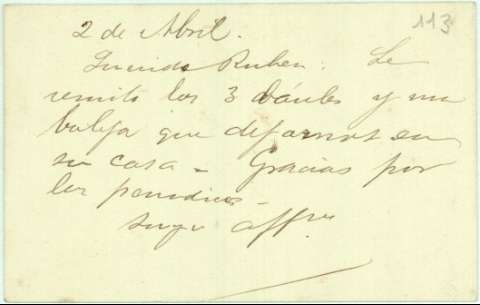 113
2 de Abril.
Querido Ruben: Le
remito los 3 baules y una
balija que dejamos en
su casa – Gracias por
los periodicos –
suyo affmo